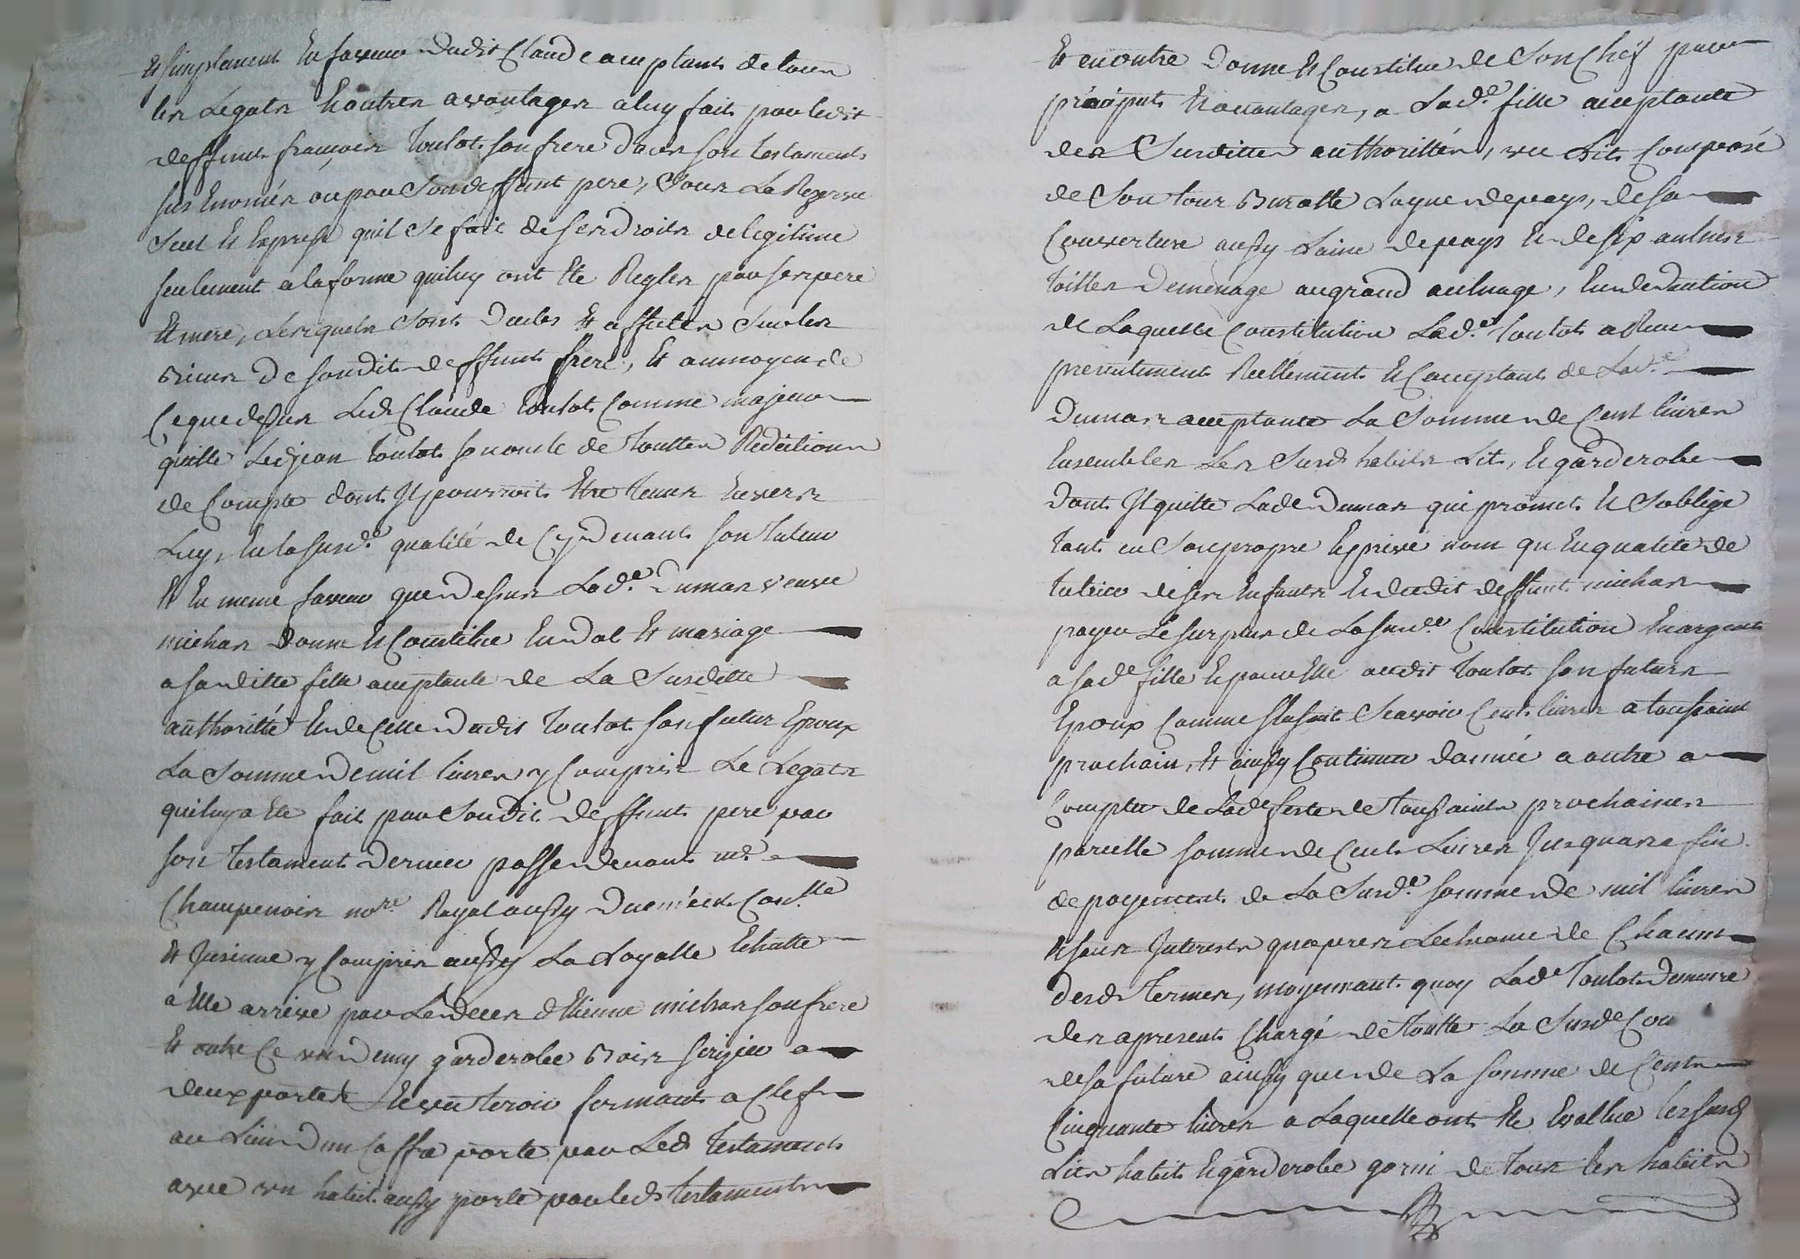 Et simplement En faveur dudit Claude acceptant de tous
les Legats Et autres avantages a luy fait par ledit
deffunt françois Toulot son frere dans son testament
sus Enoncé ou par son deffunt pere, sous La Rezerve
seul Et Expresse quil se fait de ses droits de legitime
seulement a la forme quil luy ont Eté Regler par ses pere
Et mere, Lesquels sont dualec Et affectés sur les
Biens de sondit deffunt frere, Et au moyen de
Ce que dessus Led. Claude Toulot Comme majeur
quitte Led jean Toulot son oncle de Toutten Reditions
de Compte dont Il pourroit Etre Tenus Envers
Luy, En la susd.e qualité de Cydevant son Tuteur
Et En meme faveur que dessus Lad.e Dumas veuve
michas donne Et Constitue En dot Et mariage
a saditte fille acceptante de La Susditte
authorité Et de Celle dudit Toulot son futur Epoux
La Somme de mil livres y Compris Le Legats
qui luy a Eté fait par Sondit deffunt pere par
son Testament dernier passé devant m.e
Champenois no.re Royal aussy
Et Insinué y Compris aussy La Layolle Echutte
a Elle arrivé par Le deces d'Etienne michas son frere
Et outre Ce un demy garderobe Bois serizier a
deux portes Et un tiroir fermant a Clef
au Lieu d'un Coffre porté par Led Testament
avec un habit aussy porté par led testament
Et en outre donne Et Constitue de Son Chef par
préciput Et avantages, a Lad.e fille acceptante
des Susdittes authorittés, un Lit Composé
de Son tour Buratte Layne de pays, de sa
Couverture aussy Laine de pays Et de six aulnes
Toilles de menage au grand aulnage, En deduction
de Laquelle Constitution Led.t Toulot a Reçu
presentement Reellement Et Comptant de Lad.e
Dumas acceptante La Somme de Cent livres
Ensembles Les Susd habits Lit, Et garderobe
dont Il quitte Lade Dumas qui promet Et S'oblige
tant en Son propre Et privé nom qu'En qualité de
Tutrice de ses Enfants Et dudit deffunt michas
payer Le surplus de La susd.e Constitution En argent
a sad.e fille Et pour Elle audit Toulot son futur
Epoux Comme S'Ensuit Scavoir Cent livres a toussaint
prochain, Et ainsy Continuer d'année a autre a
Compter de Lad.e feste de Toussaints prochaines
pareille somme de Cent Livres Jusqu'au a fin
de payement de La Susd.e somme de mil livres
Et sans Interests qu'apres L'echeance de Chacun
desd. Termes, moyennant quoy Led. Toulot Demeure
des a present Chargé de Toutte La Susd.e Con
de sa future ainsy que de La somme de Cent
Cinquante livres a Laquelle ont Eté Evallué les susd
Lits habit Et garderobe garni de Tous les habits